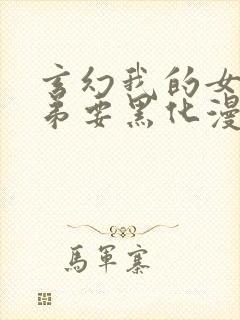 玄幻我的女
弟要黑化漫
馬軍寨